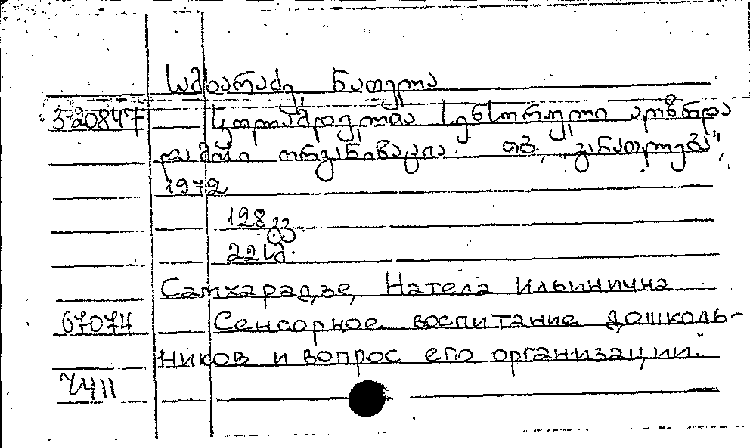 სამხარაძე, ნათელა
320847 სკოლამდელთა სენსორული აღზრდა
და მისი ორგანიზაცია. თბ., „განათლება",
1972
128 გვ
22 სმ.
Самхарадзе, Натела Ильинична
67074 Сенсорное воспитание дошколь-
ников и вопрос его организации.
7411